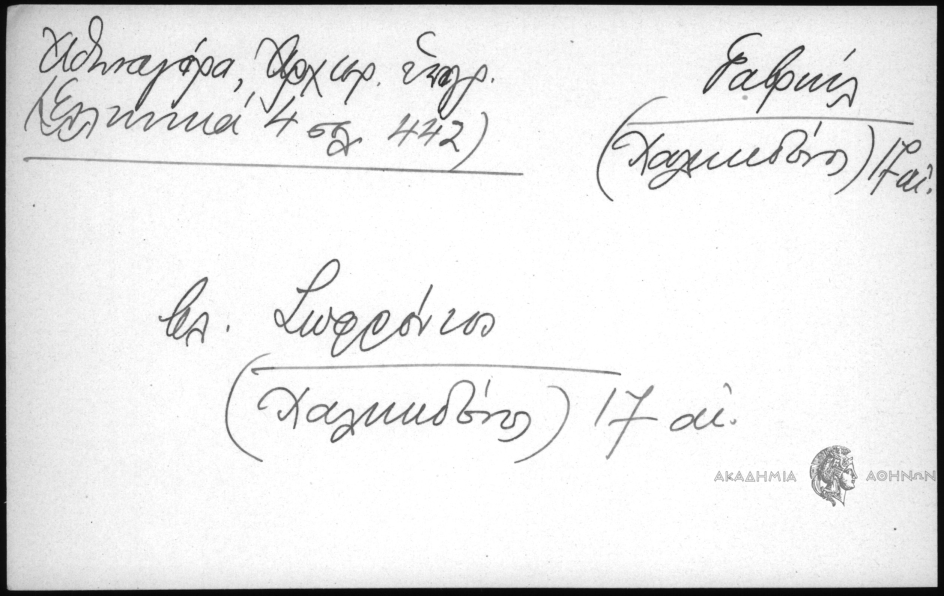 Ἀθηναγόρα, Ἀρχιερ. ὑπογρ.
(Ἑλληνικά 4 σελ. 442)
Γαβριήλ
(Χαλκηδόνος) 17 αἰ.
βλ. Σωφρόνιος
(Χαλκηδόνος) 17 αἰ.
ΑΚΑΔΗΜΙΑ ΑΘΗΝΩΝ